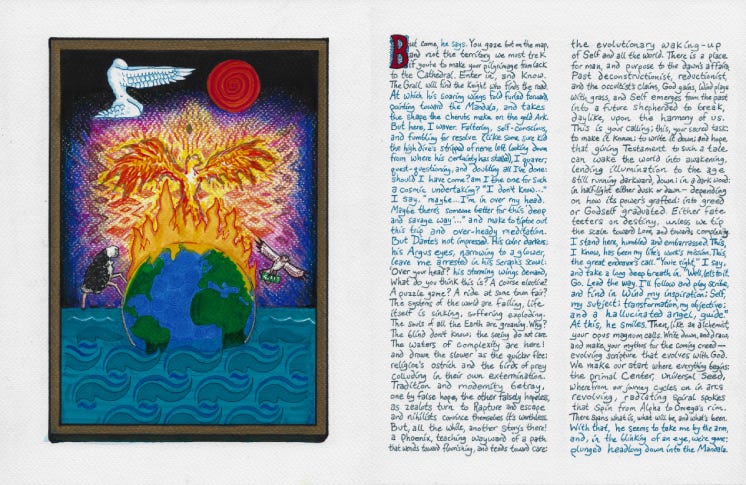 But come, he says. You gaze but on the map,
and not the territory we must trek
if you're to make your pilgrimage from lack
to the Cathedral. Enter in, and Know.
The Grail will find the Knight who finds the road.
At which his soaring wings fold furled forward,
pointing toward the Mandala, and takes
the shape the cherubs make on the gold Ark.
But here, I waver. Faltering, self-conscious,
and fumbling for resolve (like some sure kid
the high dive's stripped of nerve left looking down
from where his certainty has stalled), I quaver,
quest-questioning, and doubting all I've done:
should I have come? am I the one for such
a cosmic undertaking? "I don't know..."
I say, "maybe... I'm in over my head.
Maybe there's someone better for this 'deep
and savage way'..." and make to tiptoe out
this trip and over-heady meditation.
But Dante's not impressed. His color darkens;
his Argus eyes, narrowing to a glower,
leave me arrested in his seraph's scowl:
Over your head? his storming wings demand,
What do you think this is? A course elective?
A puzzle game? A ride at some town fair?
The systems of the world are failing, life
itself is sinking, suffering exploding.
The souls of all the Earth are groaning. Why?
The blind don't know; the seeing do not care.
The waters of complexity are here!
and drown the slower as the quicker flee:
religion's ostrich and the birds of prey
colluding in their own extermination.
Tradition and modernity betray,
one by false hope, the other falsely hopeless,
as zealots turn to Rapture and escape
and nihilists convince themselves it's worthless.
But, all the while, another story's there!
a Phoenix, teaching wayward of a path
that wends toward flourishing, and tends toward care:
the evolutionary waking-up
of Self and all the world. There is a place
for man, and purpose to the dawn's affair.
Past deconstructionist, reductionist,
and the occultist's claims, God gains,
with grass, and Self emerges from the past
into a future shepherded to break,
daylike, upon the harmony of us.
This is your calling; this, your sacred task:
to make it Known; to write it down; and hope
that giving Testament to such a tale
can wake the world into awakening,
lending illumination to the age
still running darkward, down: in a dark wood:
in half-light either dusk or dawn – depending
on how its power's grafted: into greed
or Godself graduated. Either fate
teeters on destiny, unless we tip
the scale toward Love, and towards complexity.
I stand here, humbled and embarrassed. This,
I know, has been my life's work's mission. This,
the great endeavor's call. "You're right," I say,
and take a long deep breath in. "Well, let's to it.
Go. Lead the way. I'll follow and play scribe,
and find in Wind my inspiration; Self,
my subject; transformation, my objective;
and a hallucinated angel, guide."
At this, he smiles. Then, like an alchemist,
your opus magnum calls. Write down, and draw,
and make, your mythos for the coming creed –
evolving scripture that evolves with God.
We make our start where everything begins:
the primal Center, Universal Seed,
wherefrom our journey cycles on in arcs
revolving, radiating spiral spokes
that spin from Alpha to Omega's rim.
There spins what is, what will be, and what's been.
With that, he seems to take me by the arm,
and, in the blinking of an eye, we're gone:
plunged headlong down into the Mandala.